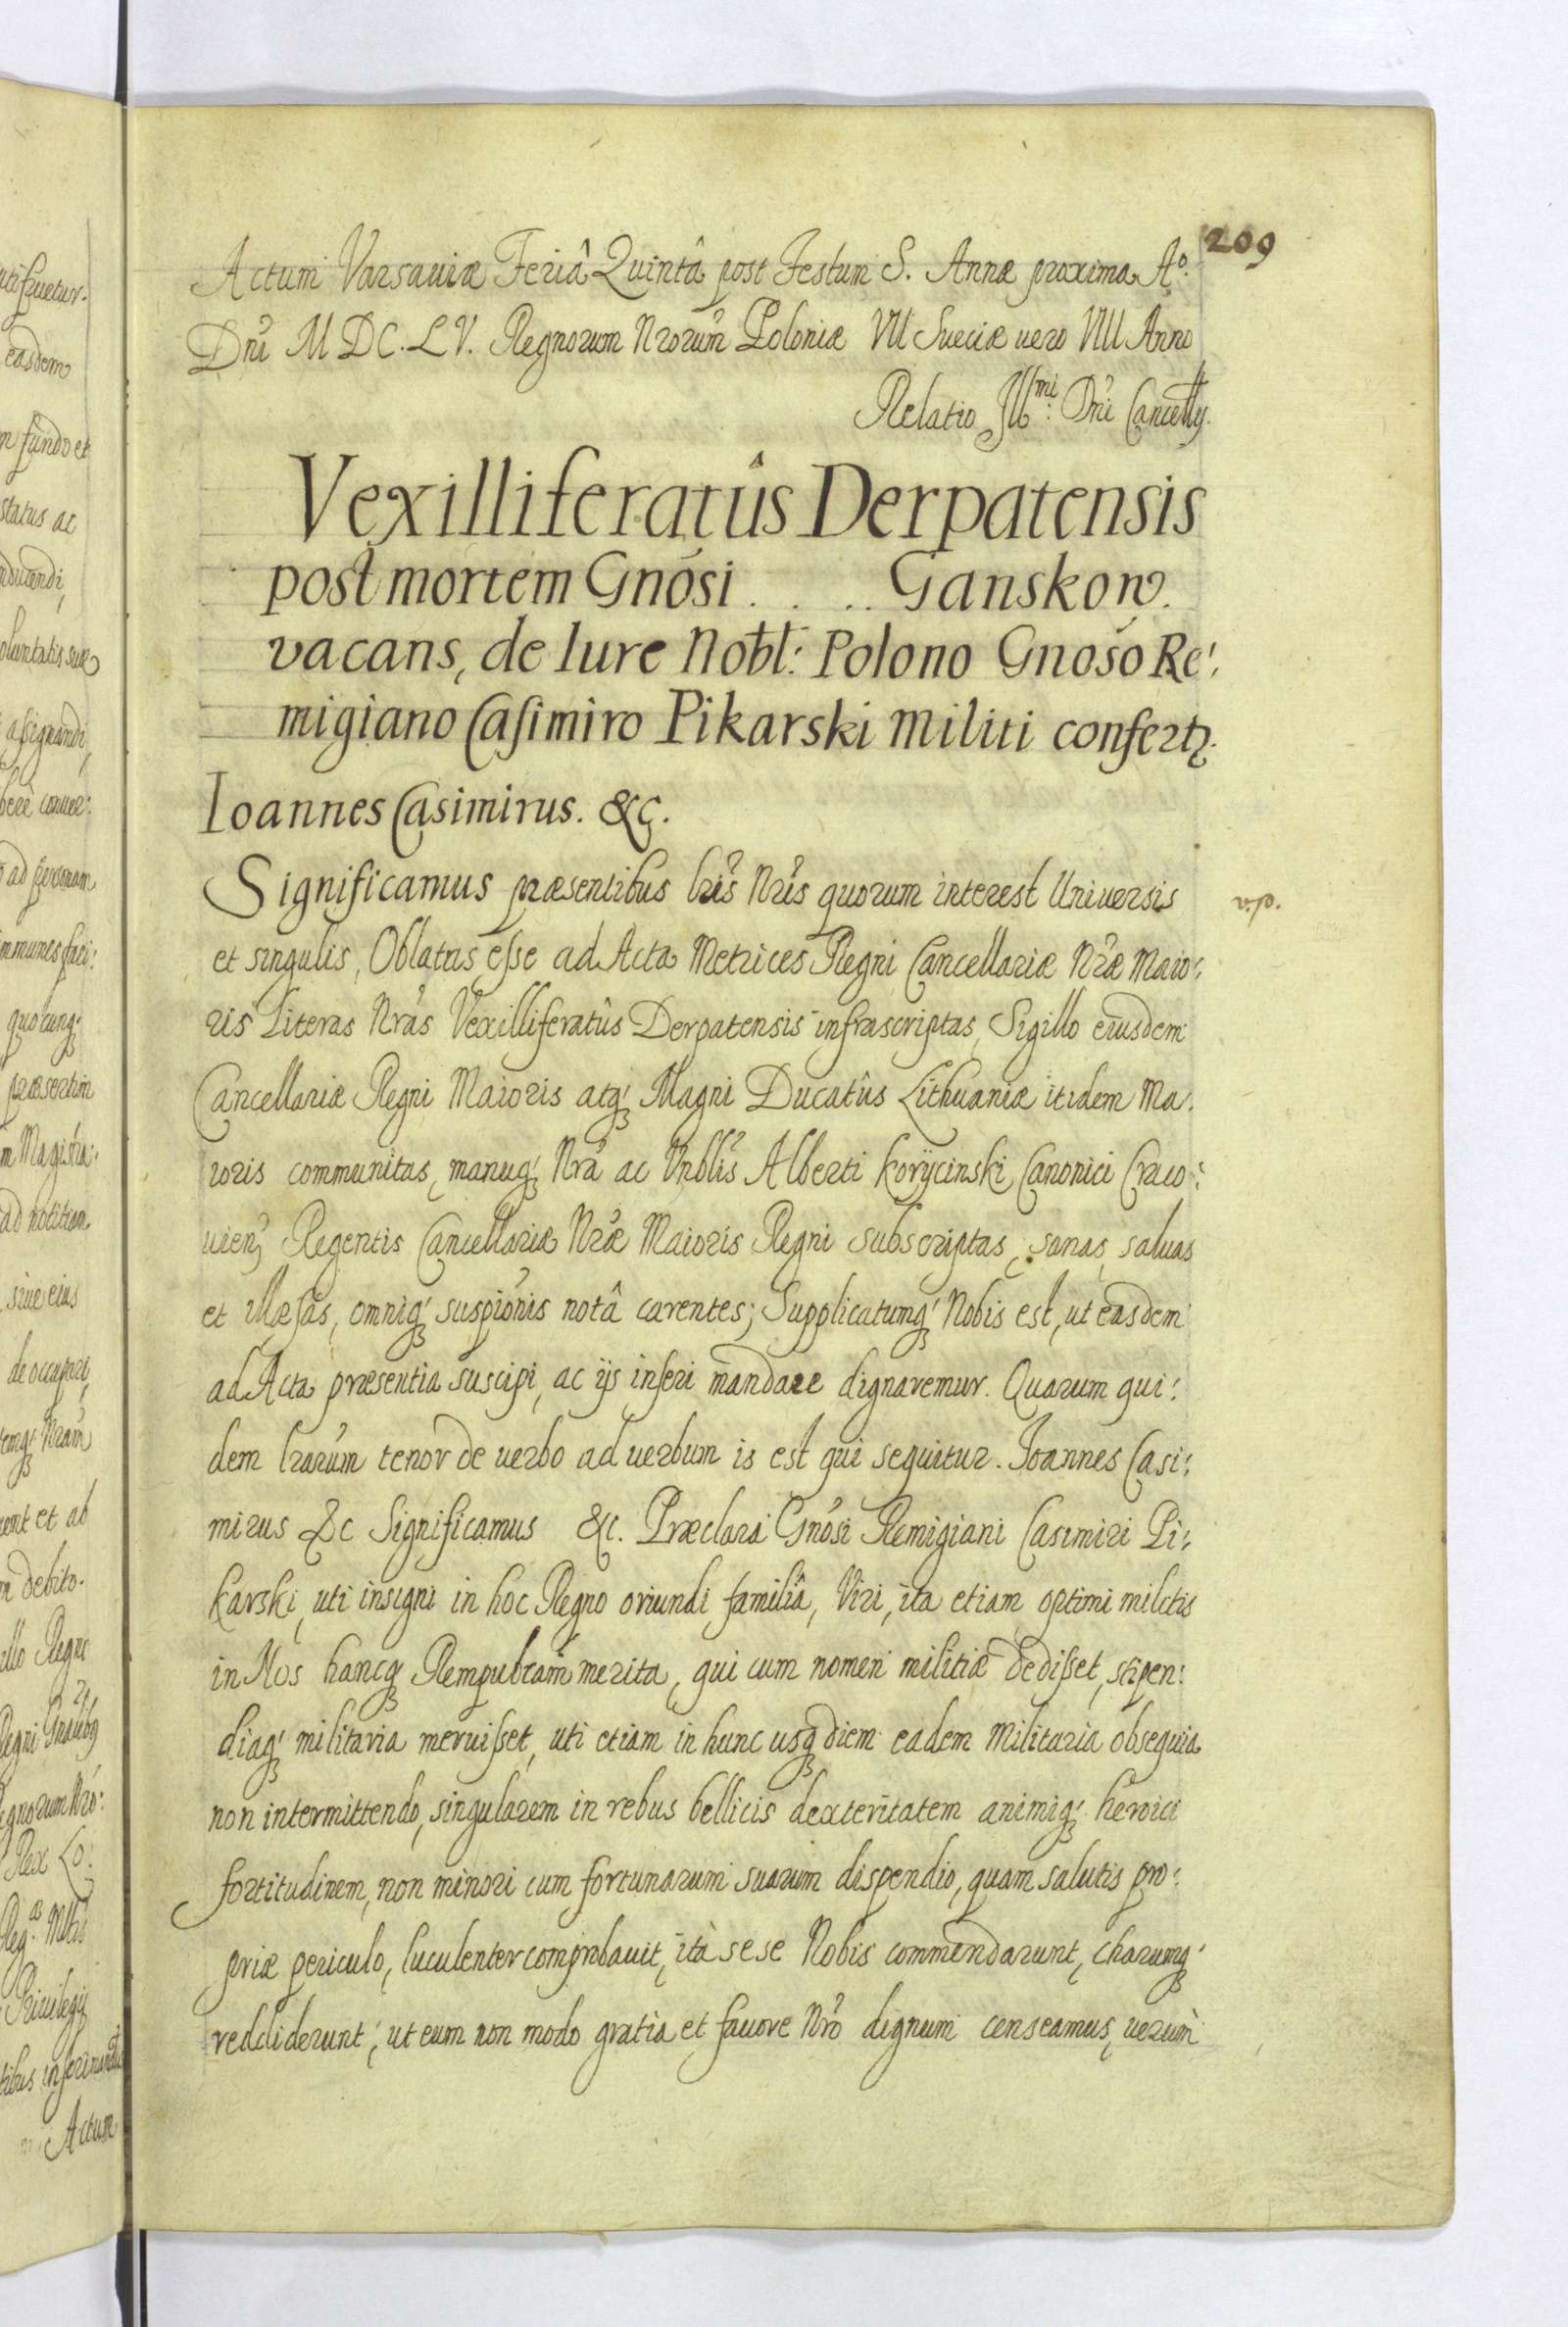 209
Actum Varsaviæ Feriâ Quintâ post Festum S. Annæ proxima Aº.
Dni M DC. LV. Regnorum Nrorum Poloniæ VII Sueciæ uero VIII Anno
Relatio Illmi: Dni Cancellrij.
Vexilliferatûs Derpatensis
post mortem Gnosi . . . . Ganskow.
vacans, de Iure Nobl: Polono Gnoso Re:
migiano Casimiro Pikarski Militi confertr.
Ioannes Casimirus. &c.
Significamus præsentibus lris Nris quorum interest Uniuersis
et singulis, Oblatas esse ad Acta Metrices Regni Cancellariæ Nræ Maio:
ris Literas Nras Vexilliferatûs Derpatensis infrascriptas, Sigillo eiusdem
Cancellariæ Regni Maioris atq; Magni Ducatûs Lithuaniæ itidem Ma:
ioris communitas, manuq; Nra ac Vnblis Alberti Korycinski Canonici Craco:
uien; Regentis Cancellariæ Nræ Maioris Regni subscriptas, sanas, saluas
et illæsas, omniq; suspionis notâ carentes; Supplicatumq; Nobis est, ut easdem
ad Acta præsentia suscipi, ac ijs inseri mandare dignaremur. Quarum qui:
dem lrarum tenor de uerbo ad uerbum is est qui sequitur. Joannes Casi:
mirus &c Significamus &c. Præclara Gnosi Remigiani Casimiri Pi:
karski, uti insigni in hoc Regno oriundi familiâ, Viri, ita etiam optimi militis
in Nos hancq; Rempublcam merita, qui cum nomen militiæ dedisset, stipen:
diaq; militaria meruisset, uti etiam in hunc usq; diem eadem Militaria obsequia
non intermittendo, singularem in rebus bellicis dexteritatem animiq; heroici
fortitudinem, non minori cum fortunarum suarum dispendio, quam salutis pro:
priæ periculo, luculenter comprobauit, ità sese Nobis commendarunt, charumq;
reddiderunt; ut eum non modo gratia et fauore Nro dignum censeamus, uerum